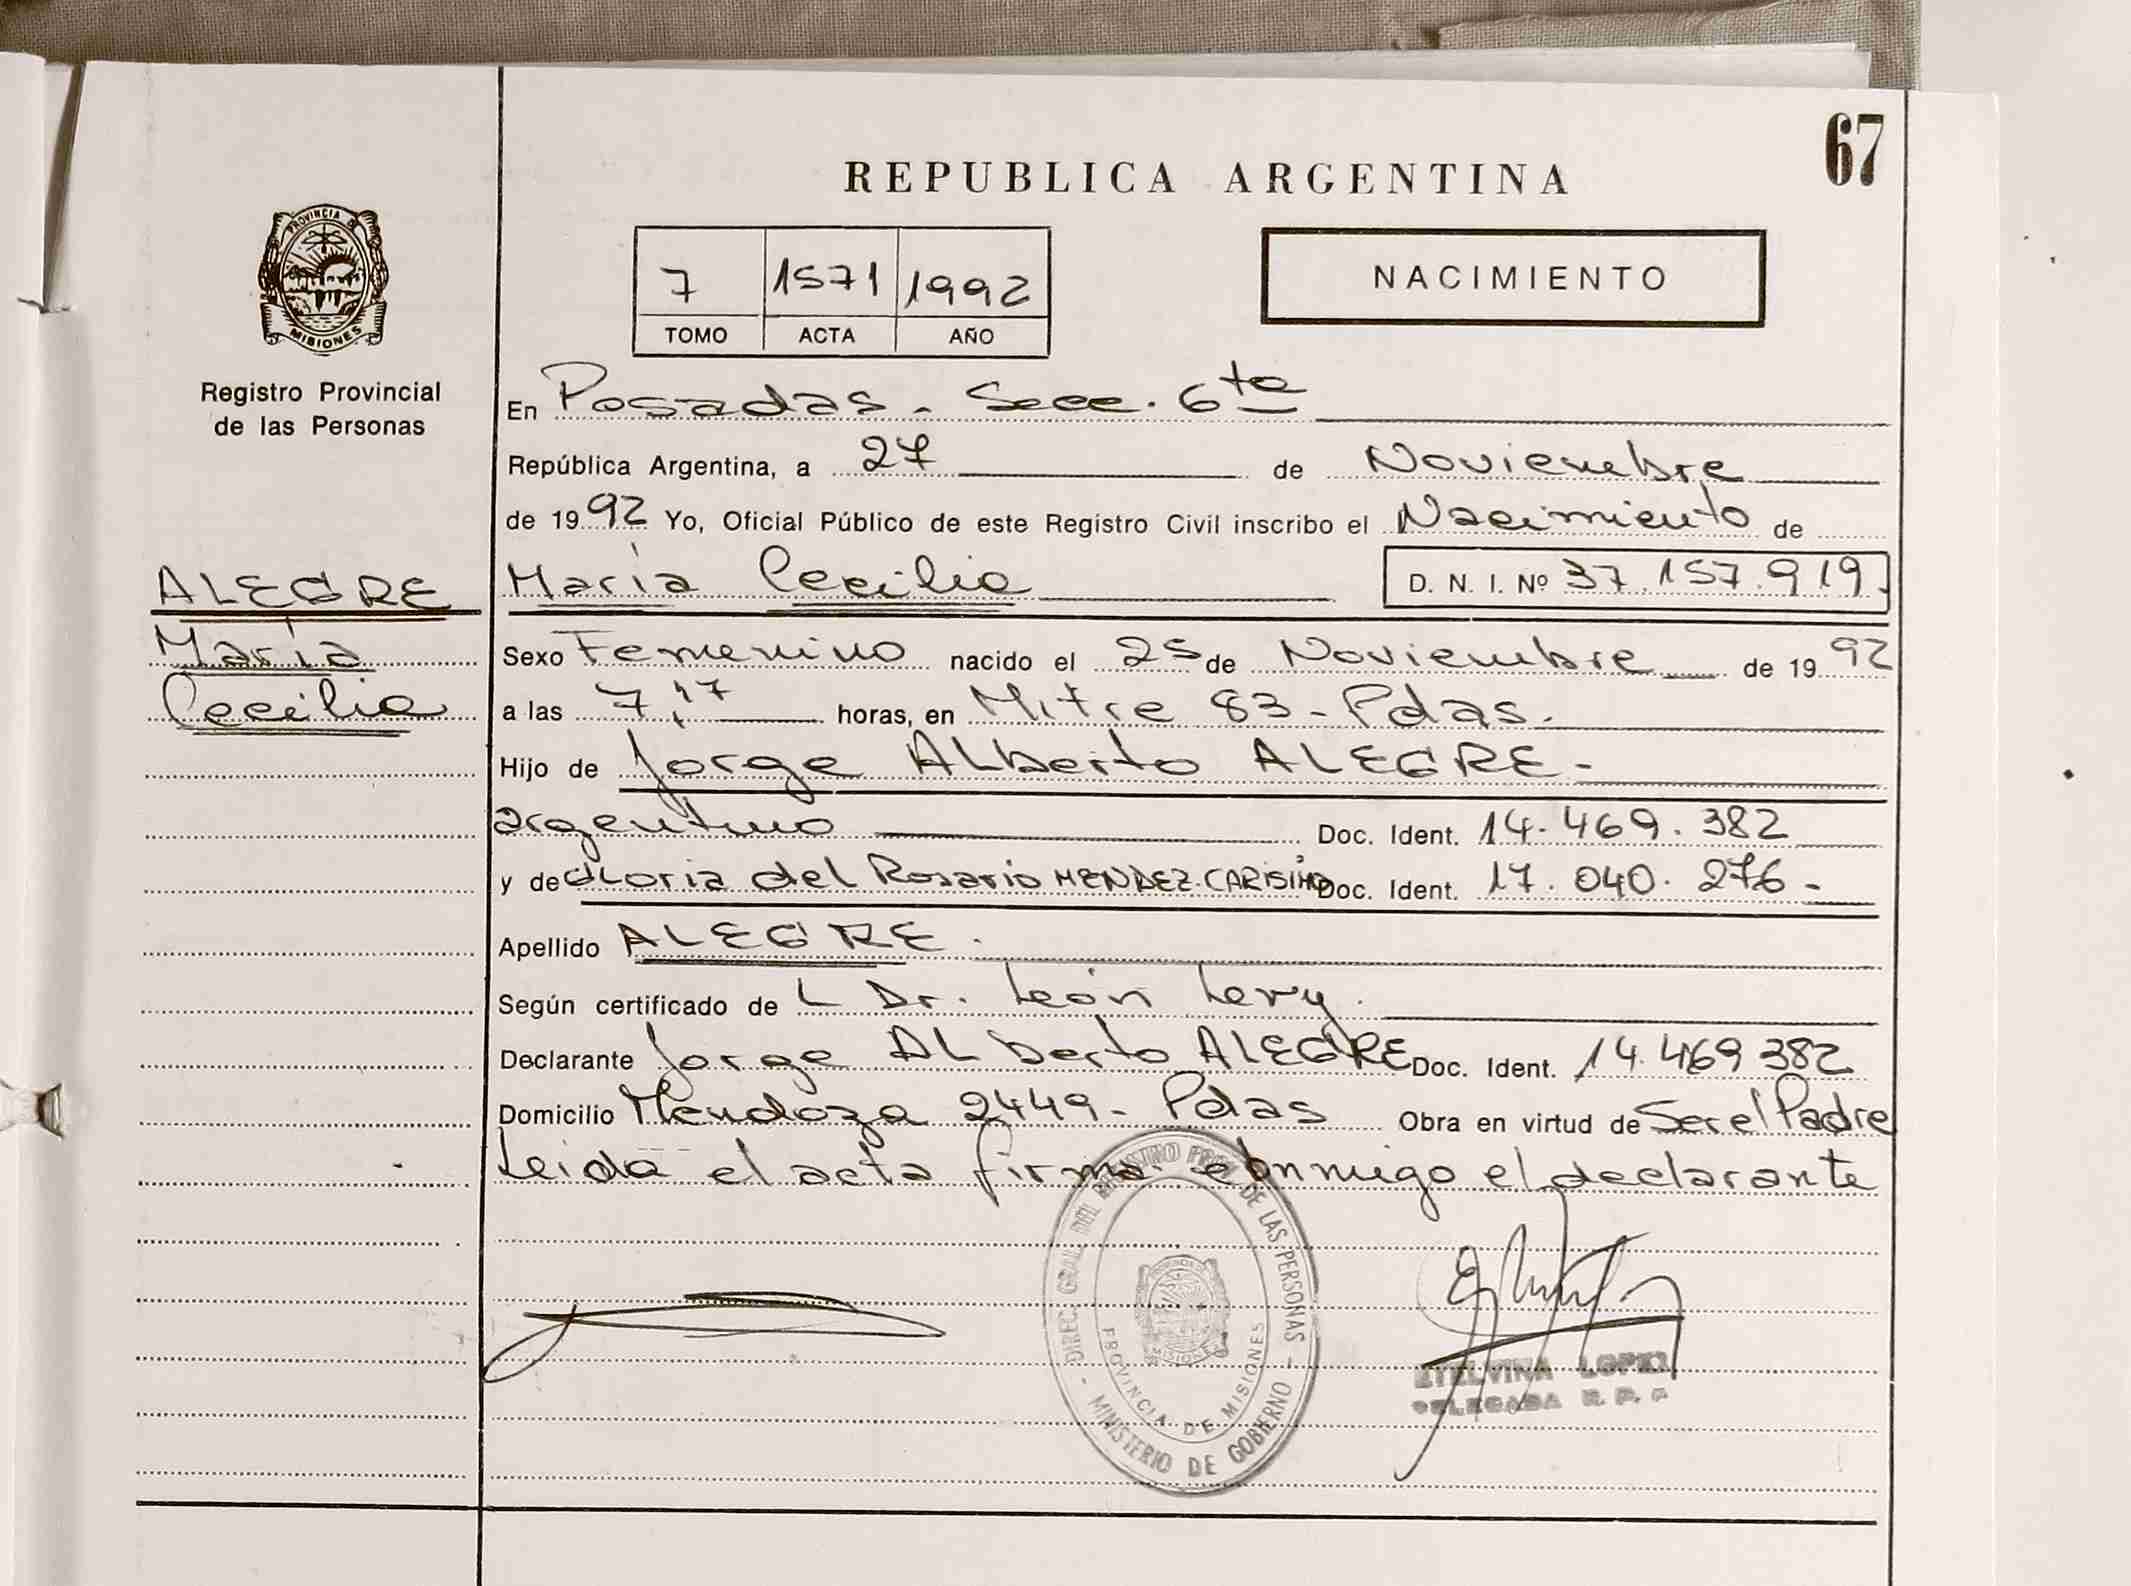 67
REPUBLICA ARGENTINA
PROVINCIA DE
MISIONES
7 1571 1992
TOMO ACTA AÑO
NACIMIENTO
Registro Provincial
de las Personas
En Posadas. Secc. 6ta
República Argentina, a 27 de Noviembre
de 1992 Yo, Oficial Público de este Registro Civil inscribo el Nacimiento de
ALEGRE
María
Cecilia
María Cecilia D. N. I. Nº 37.157.919.
Sexo Femenino nacido el 25 de Noviembre de 1992
a las 7,17 horas, en Mitre 83 - Pdas.
Hijo de Jorge Alberto ALEGRE -
argentino Doc. Ident. 14.469.382
y de Gloria del Rosario MENDEZ CARISIMO Doc. Ident. 17.040.276 -
Apellido ALEGRE.
Según certificado de L Dr. León Levy.
Declarante Jorge ALberto ALEGRE Doc. Ident. 14.469382
Domicilio Mendoza 2449 - Pdas Obra en virtud de Ser el Padre
Leida el acta firma conmigo el declarante
DIREC. GRAL. DEL REGISTRO PROV. DE LAS PERSONAS
- MINISTERIO DE GOBIERNO -
PROVINCIA DE MISIONES
ETELVINA LOPEZ
DELEGADA R. P. P.